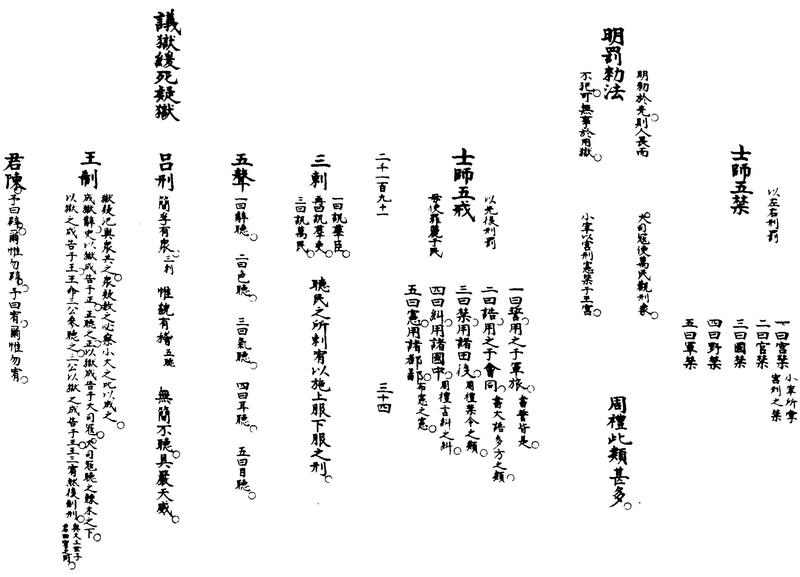 士師五禁
以左右刑罰
一曰宮禁
小宰所掌
宮刑之禁
二曰官禁
三曰國禁
四曰野禁
五曰軍禁
明罰勑法
明勑於先則人畏而
不犯可無事於用獄○
大司寇使萬民觀刑象○
小宰以宮刑憲禁于王宮○
周禮此類甚多○
士師五戒
以先後刑罰
毋使罪麗于民
一曰誓用之于軍旅 書誓皆是○
二曰誥用之于會同 書大誥多方之類○
三曰禁用諸田役 周禮禁令之類○
四曰糾用諸國中 周禮言糾之糾○
五曰憲用諸都鄙 布憲之憲○
二千一百九十一 三十四
三刺
一曰訊羣臣○
再曰訊羣吏○
三曰訊萬民○
聽民之所刺宥以施上服下服之刑○
五聲 一曰辭聽○ 二曰色聽○ 三曰氣聽○ 四曰耳聽○ 五曰目聽○
呂刑 簡孚有眾○三刺 惟貌有稽五聽 無簡不聽○具嚴天威○
議獄緩死疑獄
王制
獄疑汜與眾共之○眾疑赦之必察小大之比以成之○
成獄辭史以獄成告于正○正聽之○正以獄成告于大司寇○大司寇聽之棘木之下○
以獄之成告于王○王命三公參聽之○三公以獄之成告于王○王三宥然後制刑○
與文王世子
君曰宥之同○
君陳○予曰辟○爾惟勿辟○予曰宥○爾惟勿宥○